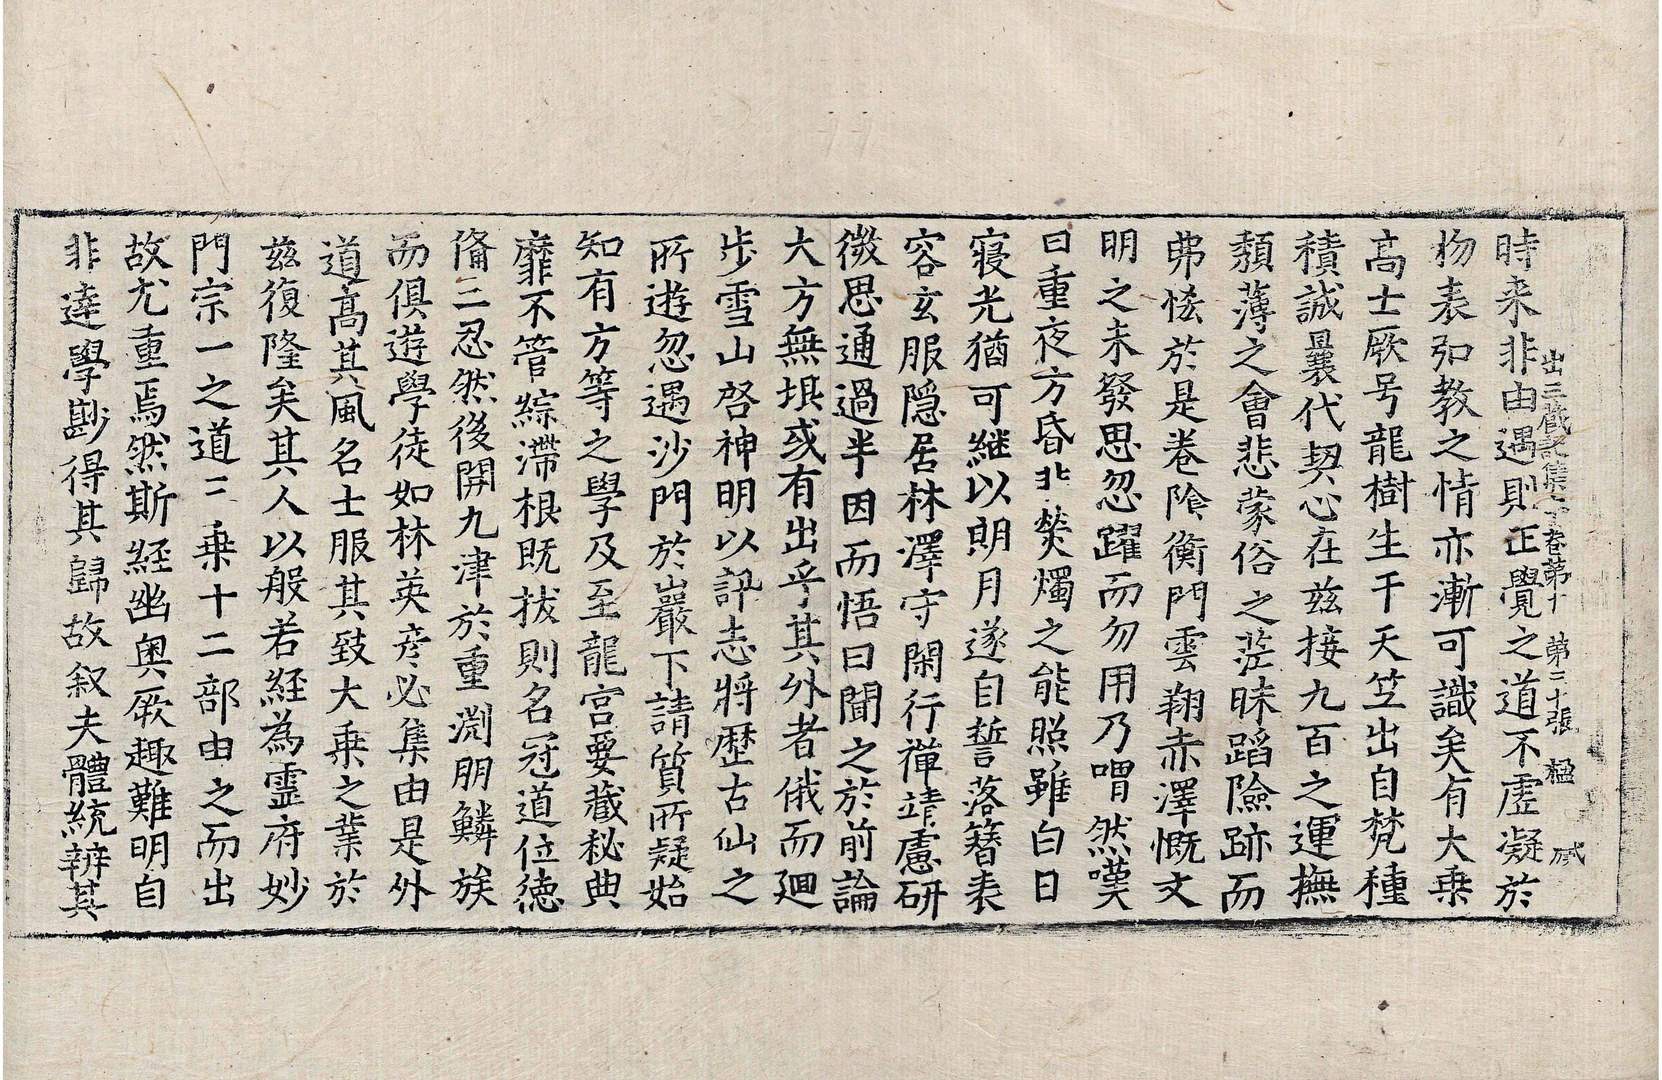 出三藏記集下卷第十 第三十張 楹
時来非由遇則正覺之道不虗凝於
物表弘教之情亦漸可識矣有大乗
髙士厥号龍樹生于天笁出自梵種
積誠曩代契心在兹接九百之運撫
頽薄之會悲蒙俗之茫昧蹈險跡而
弗恡於是卷陰衡門雲翔赤澤慨文
明之未發思忽躍而勿用乃喟然嘆
曰重夜方昏非螢燭之能照雖白日
寝光猶可継以朗月遂自誓落簪表
容玄服隠居林澤守閑行禅靖慮研
微思通過半因而悟曰聞之於前論
大方無垠或有出乎其外者俄而廻
步雪山啓神明以訊志將歴古仙之
所遊忽遇沙門於巖下請質所疑始
知有方等之學及至龍宫要藏秘典
靡不管綜滯根既拔則名冠道位徳
俻三忍然後開九津於重渊朋鱗族
而俱遊學徒如林英彦必集由是外
道髙其風名士服其致大乗之業於
兹復隆矣其人以般若経為霊府妙
門宗一之道三乗十二部由之而出
故尤重焉然斯経幽奥厥趣難明自
非逹學尠得其歸故叙夫體統辨其